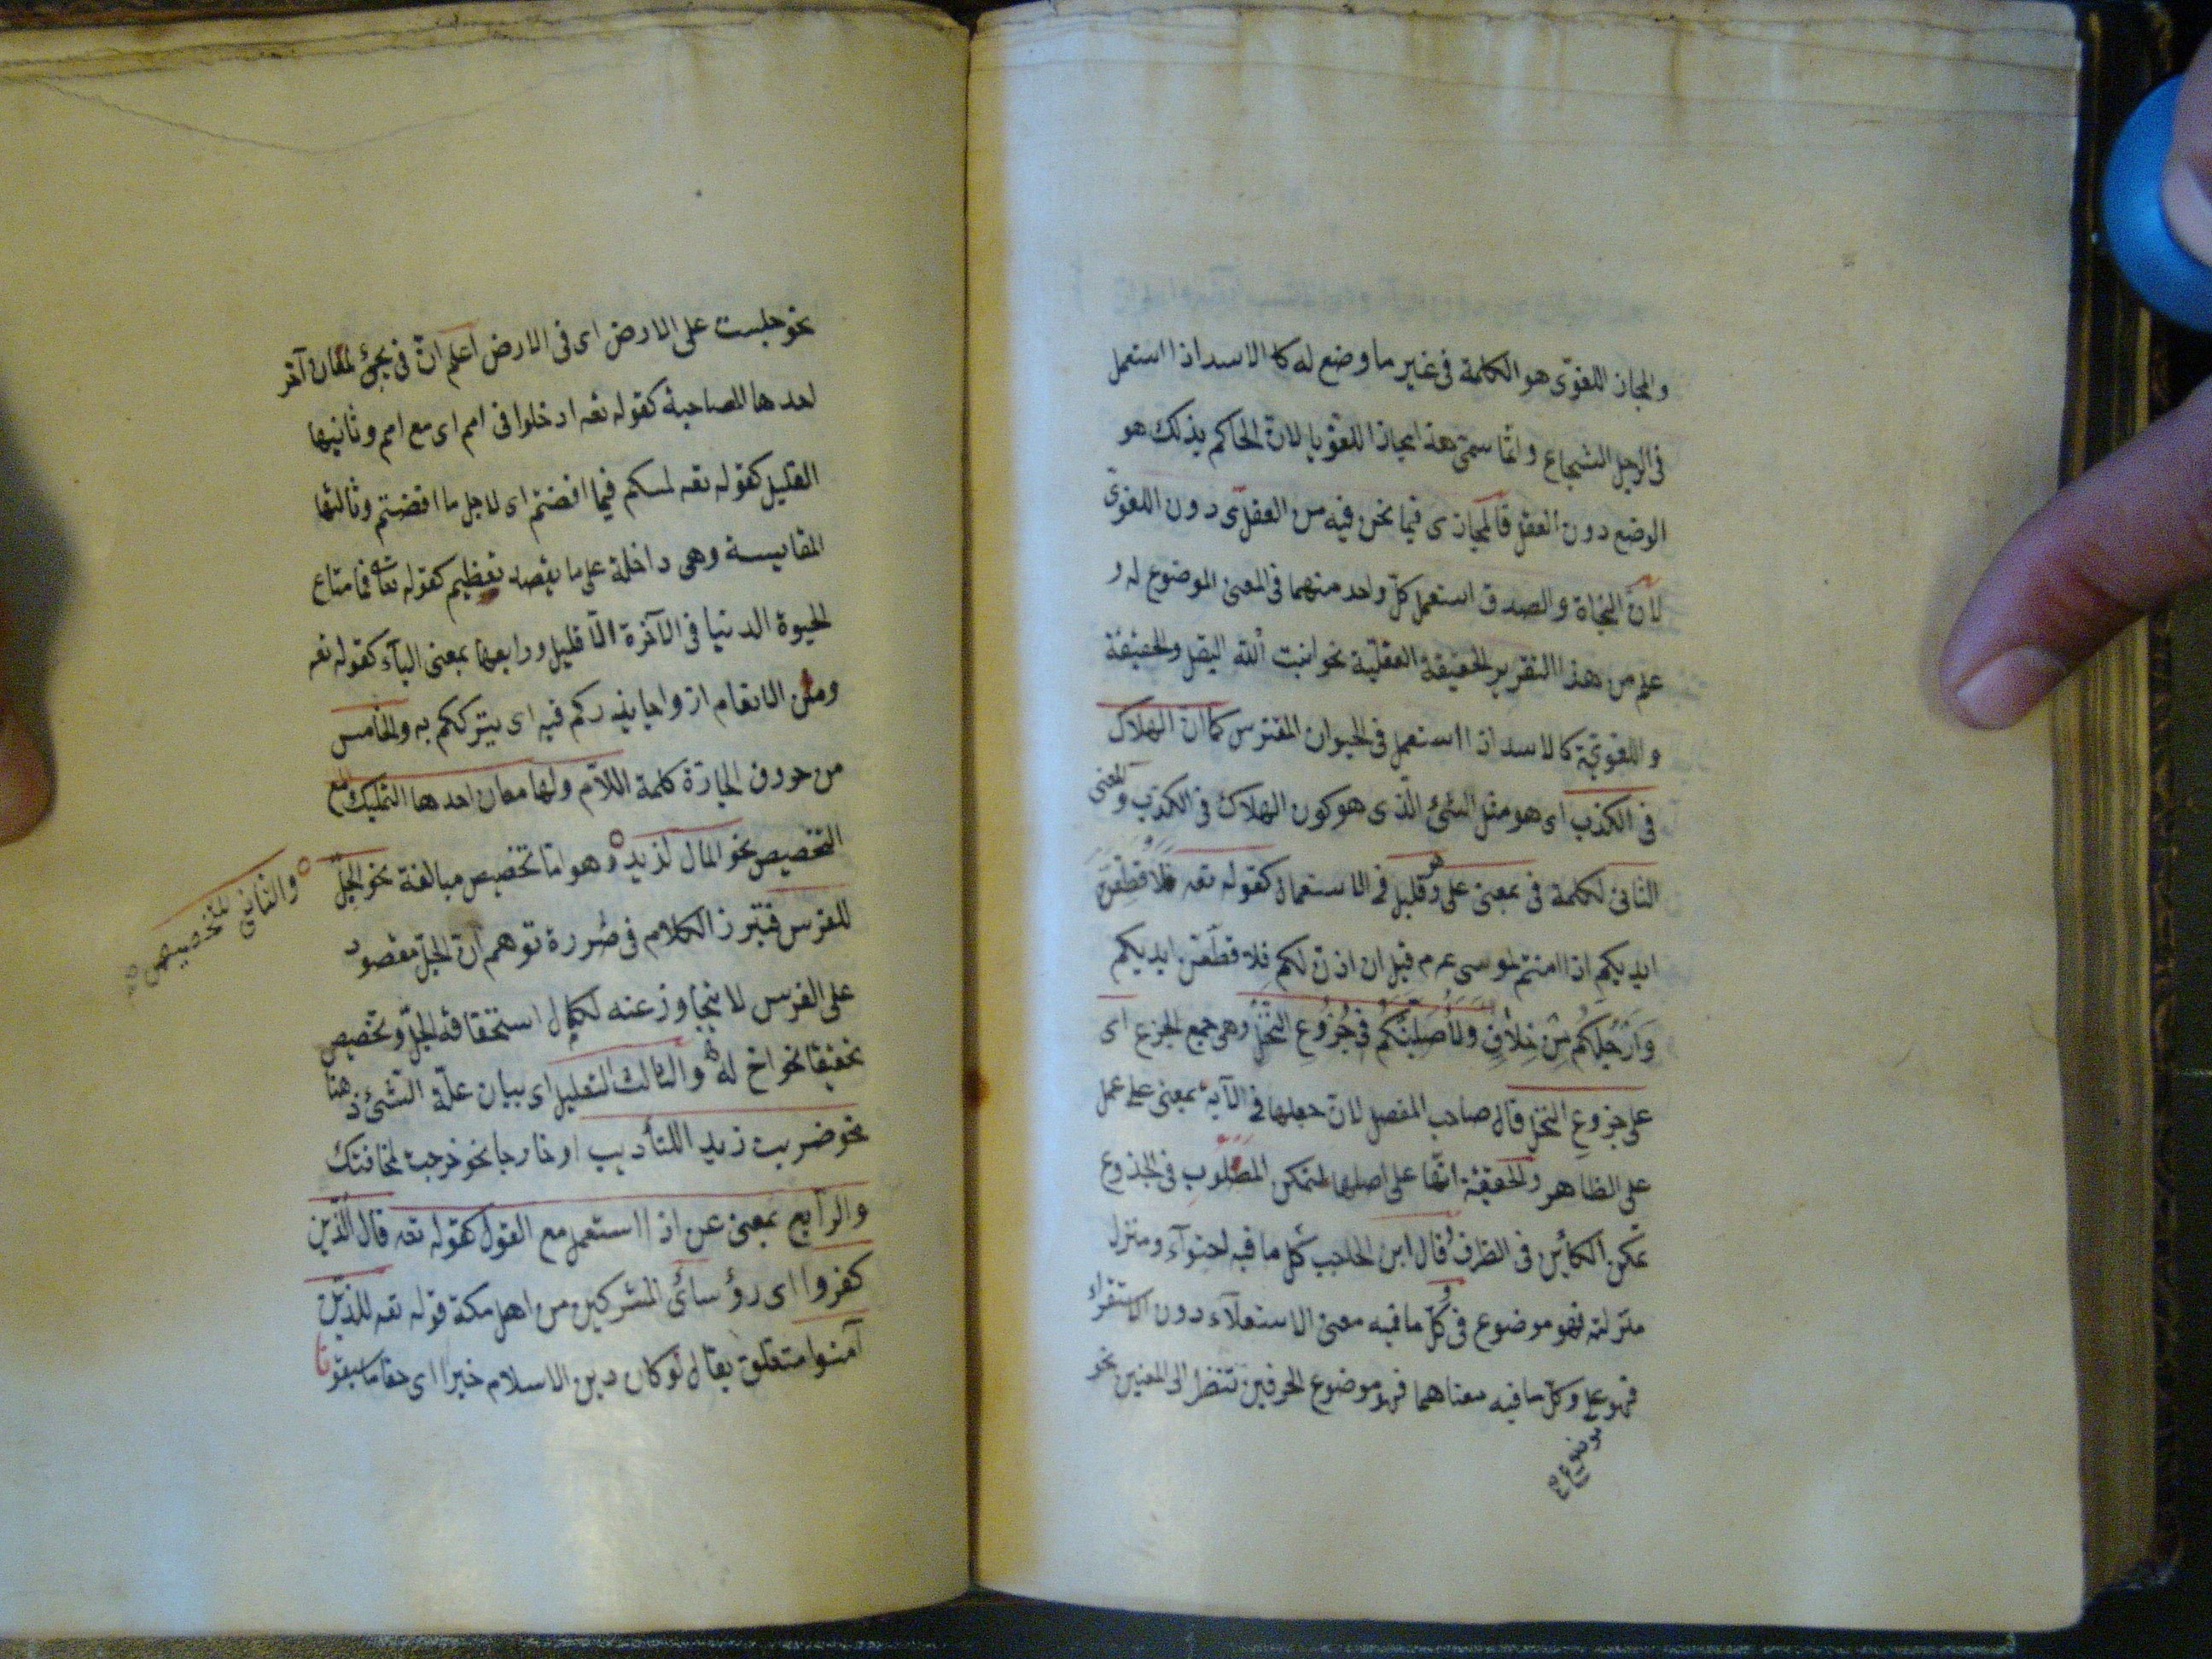 والمجاز اللغوى هو الكلمة فى غير ما وضع له كا الاسد اذا استعمل
فى الرجل الشجاع وانما سمى هذا مجازا للغويا لان الحاكم بذلك هو
الوضع دون العقل فالمجازى فيما نحن فيه من العقلى دون اللغوى
لان النجاة والصدق استعمل كل واحد منهما فى المعنى الموضوع له و
علم من هذا التقرير الحقيقة العقلية نحو انبت الله البقل والحقيقة
واللغوية كالاسد اذا استعمل فى الحيوان المفترس كما ان الهلاك
فى الكذب اى هو مثل الشئ الذى هو كون الهلاك فى الكذب والمعنى
الثانى لكلمة فى بمعنى على وهو قليل فى الاستعمال كقوله تعه فلاقطعن
ايديكم اذا امنتم لموسى عم م قبل ان اذن لكم فلاقطعن ايديكم
وارجلكم من خلاف ولاصلبنكم فى جزوع النخل وهى جمع الجزع اى
على جزوع النخل قال صاحب المفصل لان جعلها فى الآية بمعنى على عمل
على الظاهر والحقيقة انها على اصلها لتمكن المصلوب فى الجذوع
تمكن الكائين فى الظرف وقال ابن الحاجب كل ما فيه احتوآء ومنزل
منزلته فهو موضوع فى وكل ما فيه معنى الاستعلآء دون الاستقراء
فهو على وكل ما فيه معناهما فهو موضوع الحرفين تنظر الى المعنين نحو
موضوع صح
نحو جلست على الارض اى فى الارض اعلم ان فى يجئ لمعان آخر
احدها المصاحبة كقوله تعه ادخلوا فى امم اى مع امم وثانيها
القليل كقوله تعه لمسكم فيما افضتم اى لاجل ما افضتم وثالثها
المقايسة وهى داخلة على ما يقصد تعظيم كقوله تعالى فما متاع
الحيوة الدنيا فى الآخرة الا قليل ورابعها بمعنى البآء كقوله تعه
ومن الانعام ازواجا يذركم فيه اى يتركككم به والخامس
من حروف الجارة كلمة اللام ولها معان احدها التمليك مع
التخصيص نحو المال لزيد وهو اما تخصيص مبالغة نحو الجل
والثانى للتخصيص صح
للفرس فتبرز الكلام فى ضورة توهم ان الجل مقصود
على الفرس لا يتجاوز عنه لكمال استحقاقه الجل وتخصيص
تحقيقا نحو اخ له والثالث التعليل اى بيان علة الشئ ذهنا
نحو ضربت زيد اللتأديب او خارجا نحو خرجت لمخافتك
والرابع بمعنى عن اذا استعمل مع القول كقوله تعه قال الذين
كفروا اى رؤسائ المشركين من اهل مكة قوله تعه للذين
آمنوا متعلق بقال لو كان دين الاسلام خيرا اى حقا ما سبقونا